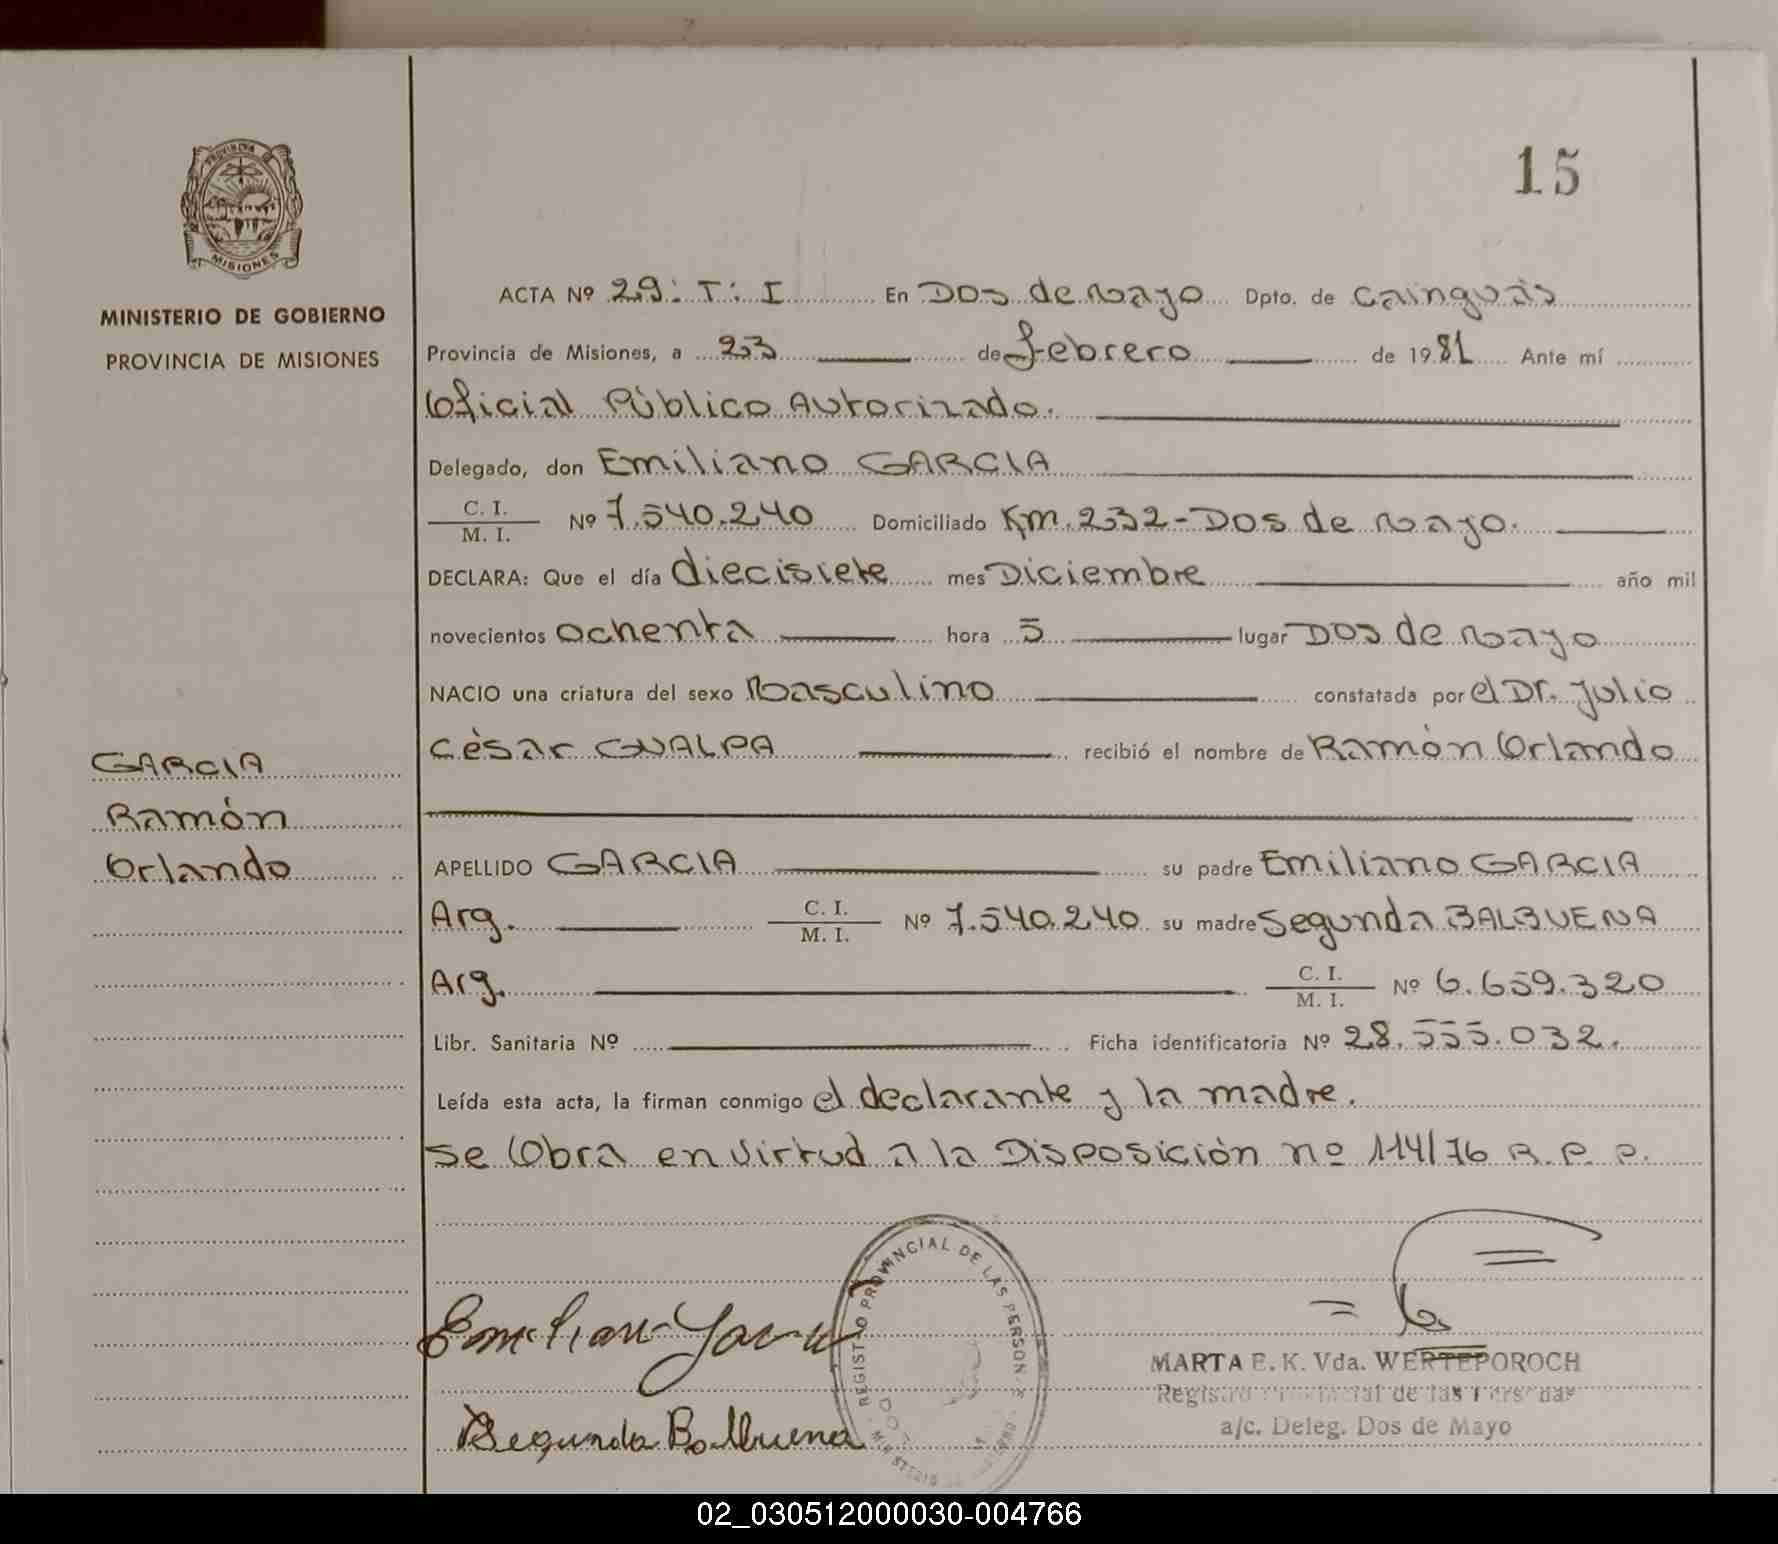 PROVINCIA
MISIONES
MINISTERIO DE GOBIERNO
PROVINCIA DE MISIONES
GARCIA
Ramón
Orlando
15
ACTA Nº 29: T: I En Dos de Mayo Dpto. de Cainguás
Provincia de Misiones, a 23 de febrero de 1981 Ante mí
Oficial Público Autorizado.
Delegado, don Emiliano GARCIA
C. I.
M. I. Nº 7.540.240 Domiciliado Km. 232-Dos de Mayo.
DECLARA: Que el día diecisiete mes Diciembre año mil
novecientos ochenta hora 5 lugar Dos de Mayo
NACIO una criatura del sexo Masculino constatada por el Dr. Julio
César GUALPA recibió el nombre de Ramón Orlando
APELLIDO GARCIA su padre Emiliano GARCIA
Arg. C. I. M. I. Nº 7.540.240 su madre Segunda BALBUENA
Arg. C. I. M. I. Nº 6.659.320
Libr. Sanitaria Nº Ficha identificatoria Nº 28.555.032.
Leída esta acta, la firman conmigo el declarante y la madre.
Se Obra en virtud a la Disposición nº 114/76 R.P.P.
REGISTRO PROVINCIAL DE LAS PERSON
Segunda Balbuena
MARTA E. K. Vda. WERTEPOROCH
Registro Provincial de las Personas
a/c. Deleg. Dos de Mayo
02_030512000030-004766